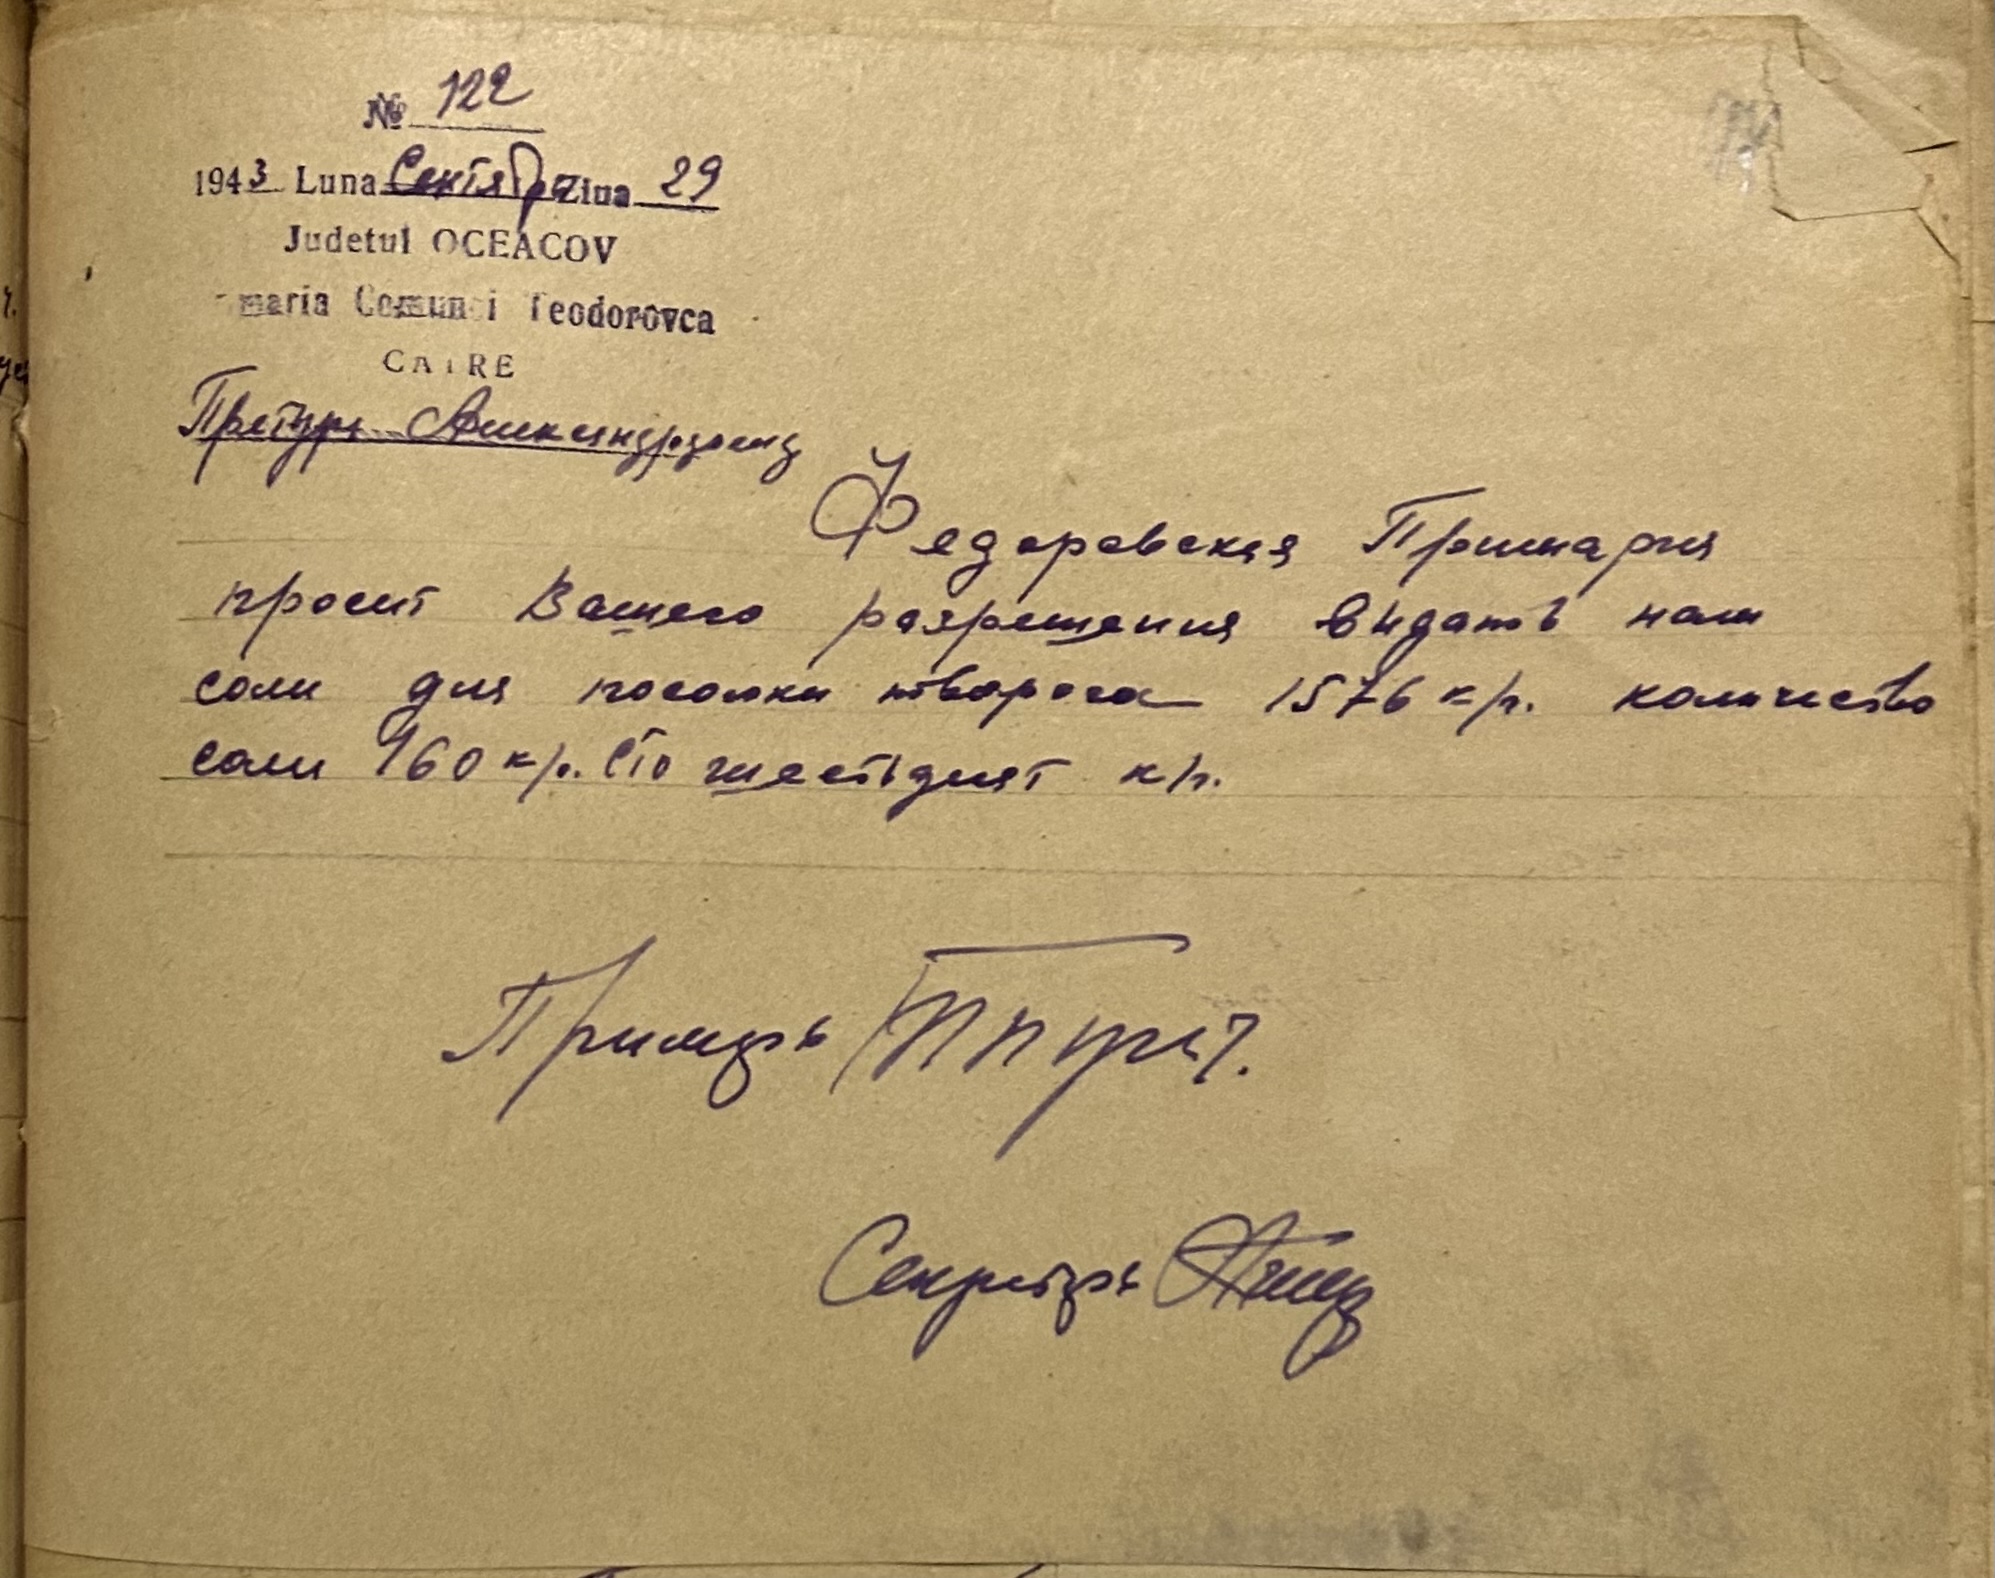 № 122
1943 Luna Сентября Ziua 29
Judetul OCEACOV
maria Comunei Teodorovca
CATRE
Претура Александродар
Федоровская Примария
просит Вашего разрешения видать нам
соли для посолки творога 1576 кгр. количество
соли 160 кгр. Сто шестьдият кгр.
Примарь
Секретарь